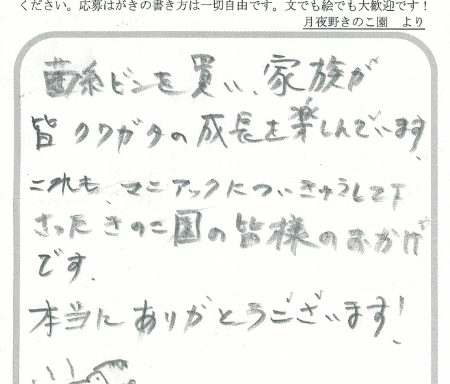 ください。応募はがきの書き方は一切自由です。文でも絵でも大歓迎です！
月夜野きのこ園　より
菌糸ビンを買い、家族が
皆クワガタの成長を楽しんでいます。
これも、マニアックについきゅうして下
さったきのこ園の皆様のおかげ
です。
本当にありがとうございます！